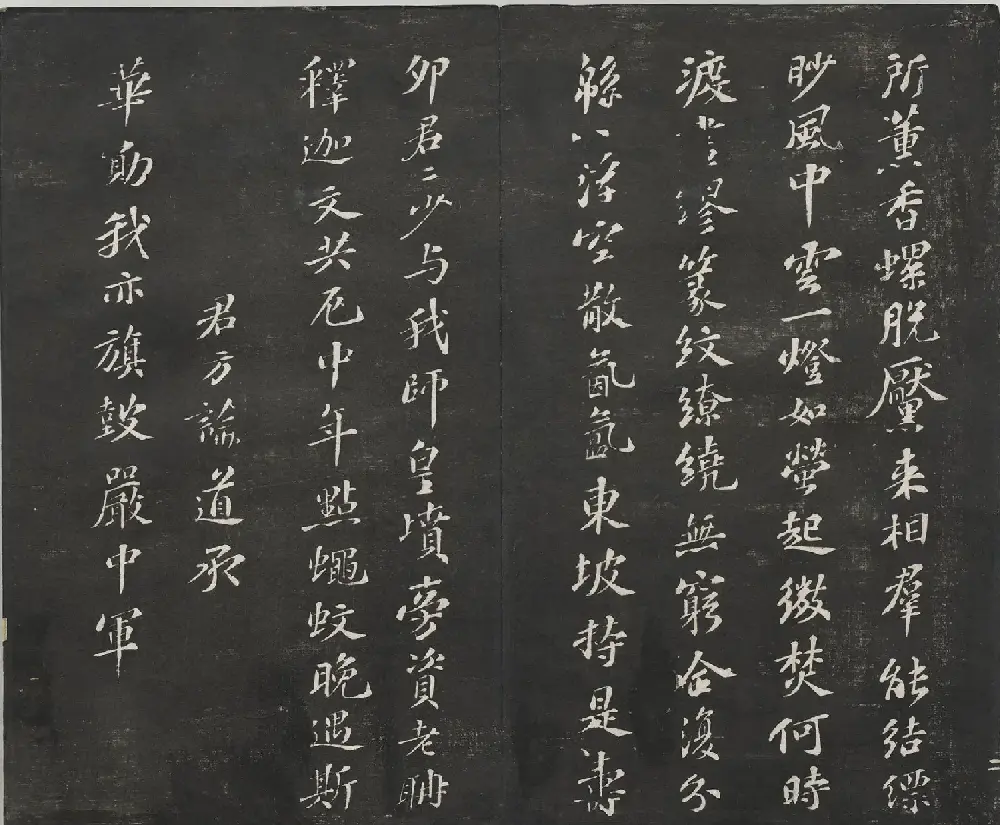 所薰香螺脫黶来相羣能結縹
眇風中雲一燈如螢起微焚何時
渡盡繆篆紋繚繞無窮合復分
緜〻浮空散氤氳東坡持是壽
卯君〻少与我師皇墳旁資老聃
釋迦文共厄中年點蠅蚊晚遇斯
君方論道承
華勛我亦旗鼓嚴中軍